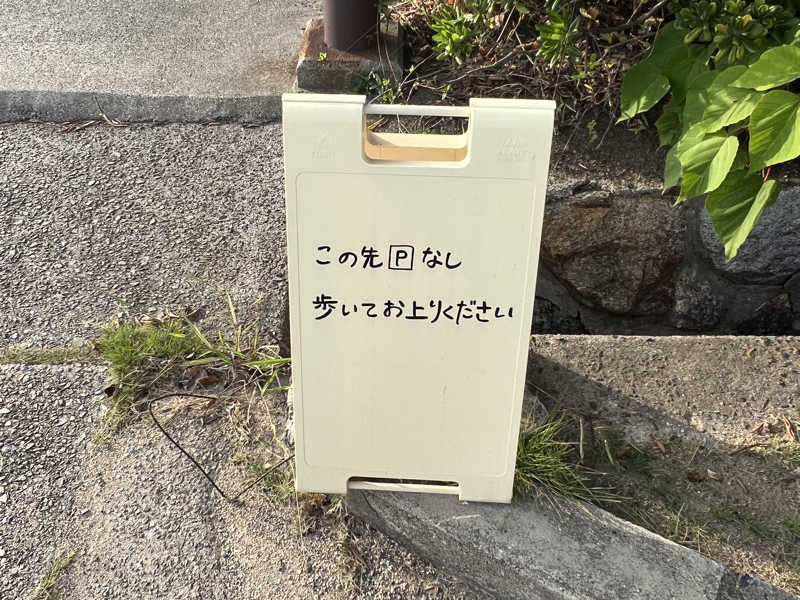 この先🄿なし
歩いてお上りください